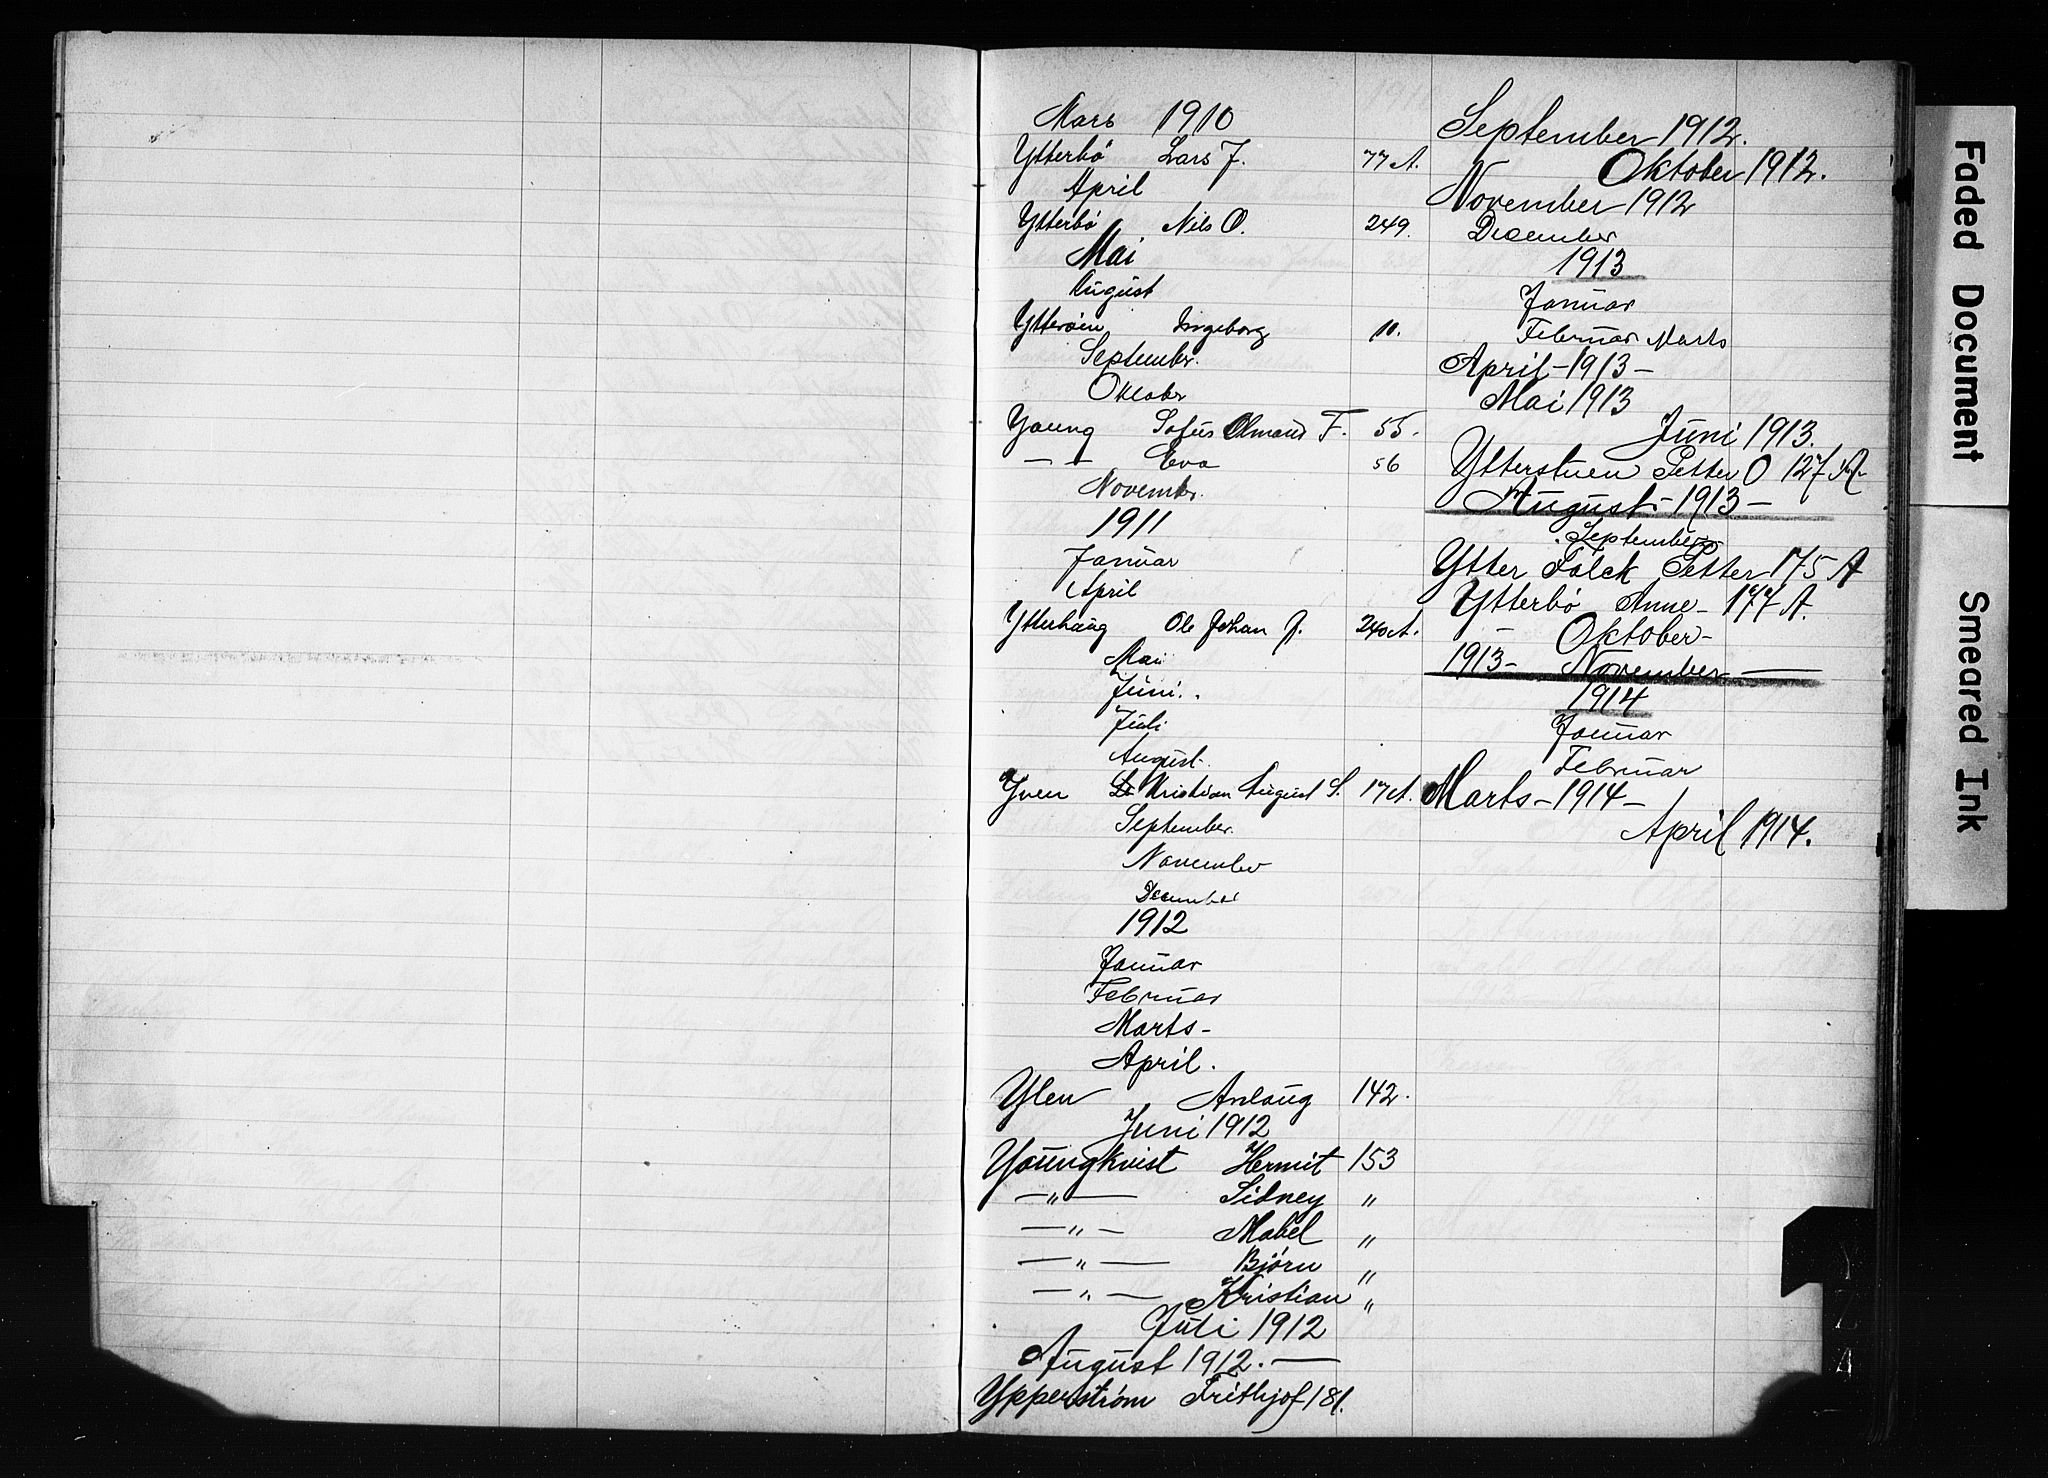 Mars 1910
Ytterbö Lars J. 77 A.
April
Ytterbö Nils O. 249.
Mai
August
Ytteröen Ingeborg 10.
September.
Oktober
Young Sofus Amand F. 55.
— — Eva 56
Novembr.
1911
Januar
April
Ytterhaug Ole Johan J. 240 A.
Mai
Juni.
Juli
August.
Yven Kristian August S. 17 A.
September.
November
December
1912
Januar
Februar
Marts-
April.
Ylen Anlaug 142.
Juni 1912
Youngkvist Hermit 153
—„— Sidney „
—„— Mabel „
—„— Bjørn „
—„— Kristian „
Juli 1912
August 1912. —
Ypperström Frithjof 181.
September 1912.
Oktober 1912.
November 1912
December
1913
Januar
Februar Marts
April-1913-
Mai 1913
Juni 1913.
Ytterstuen Petter O 127 A.
August-1913-
September
Ytter Falck Petter 175 A
Ytterbö Anne- 177 A.
- Oktober-
1913- November —
1914
Januar
Februar
Marts-1914-
April 1914.
Faded Document
Smeared Ink
Y
Z